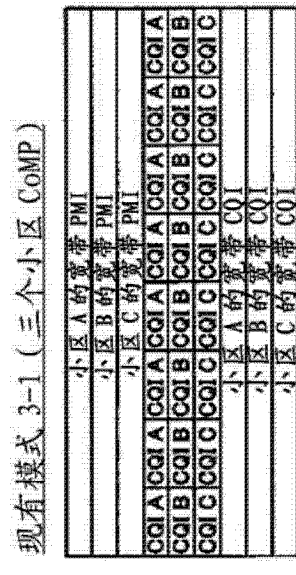 现有模式 3-1 (三个小区 CoMP)
小区 A 的宽带 PMI
小区 B 的宽带 PMI
小区 C 的宽带 PMI
CQI A CQI A CQI A CQI A CQI A CQI A CQI A CQI A
CQI B CQI B CQI B CQI B CQI B CQI B CQI B CQI B
CQI C CQI C CQI C CQI C CQI C CQI C CQI C CQI C
小区 A 的宽带 CQI
小区 B 的宽带 CQI
小区 C 的宽带 CQI